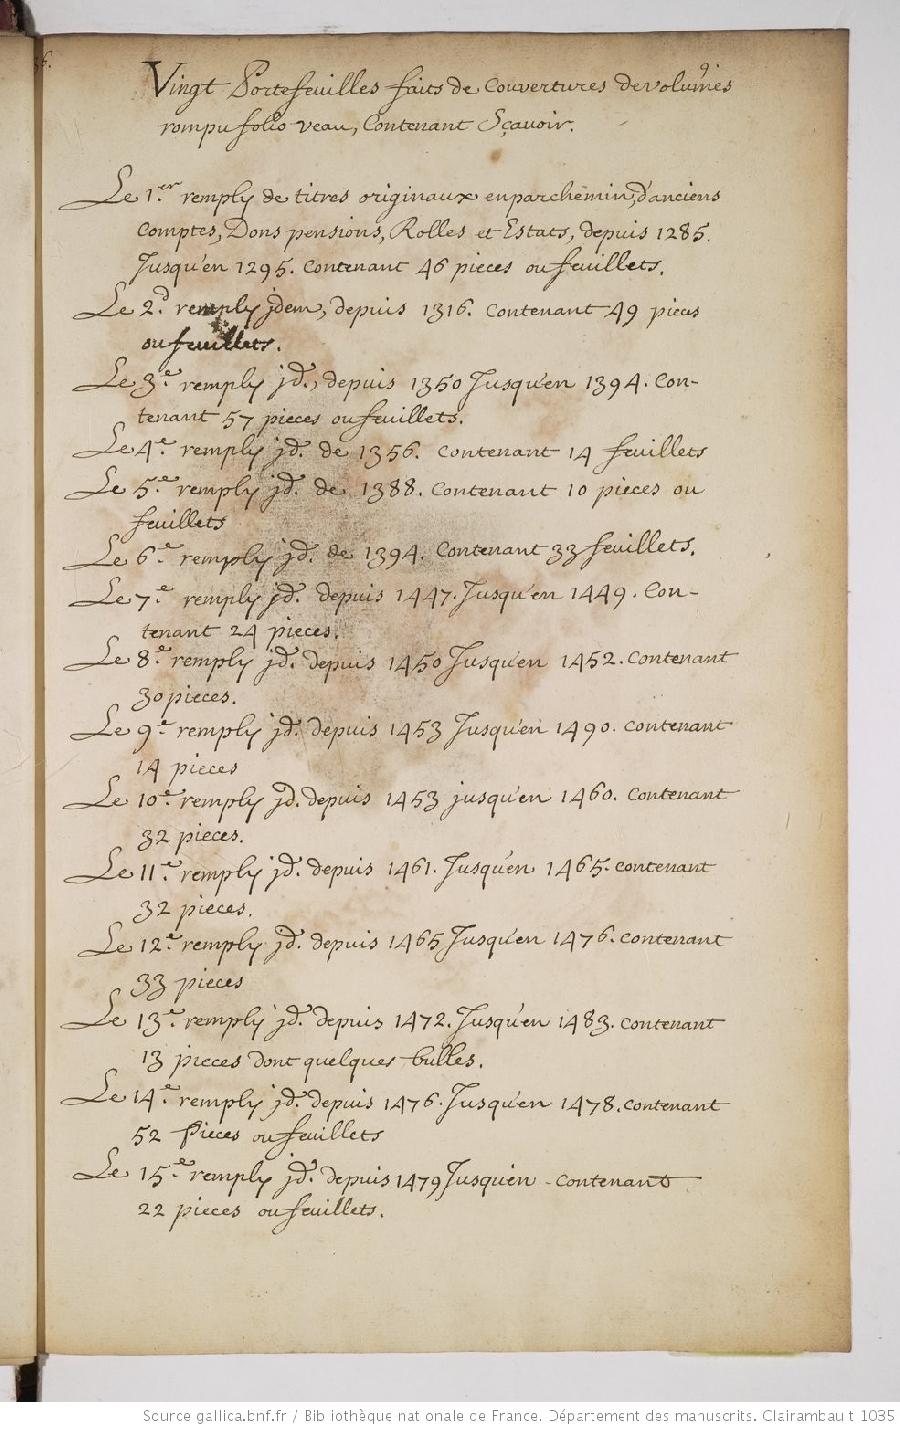 Vingt Portefeuilles faits de Couvertures de volumes
rompu folio veau, Contenant Sçavoir.
Le 1.er remply de titres originaux en parchemin, d'anciens
Comptes, Dons pensions, Rolles et Estats, depuis 1285.
Jusqu'en 1295. Contenant 46 pieces ou feuillets.
Le 2.d remply jdem, depuis 1316. Contenant 49 pieces
ou feuillets.
Le 3.e remply jd., depuis 1350 Jusqu'en 1394. Con-
tenant 57 pieces ou feuillets.
Le 4.e remply jd. de 1356. Contenant 14 feuillets
Le 5.e remply jd. de 1388. Contenant 10 pieces ou
feuillets
Le 6.e remply jd. de 1394. Contenant 33 feuillets.
Le 7.e remply jd. depuis 1447. Jusqu'en 1449. Con-
tenant 24 pieces.
Le 8.e remply jd. depuis 1450 Jusqu'en 1452. Contenant
30 pieces.
Le 9.e remply jd. depuis 1453 Jusqu'en 1490. Contenant
14 pieces
Le 10.e remply jd. depuis 1453 jusqu'en 1460. Contenant
32 pieces.
Le 11.e remply jd. depuis 1461. Jusqu'en 1465. Contenant
32 pieces.
Le 12.e remply jd. depuis 1465 Jusqu'en 1476. Contenant
33 pieces
Le 13.e remply jd. depuis 1472. Jusqu'en 1483. Contenant
13 pieces dont quelques bulles.
Le 14.e remply jd. depuis 1476. Jusqu'en 1478. Contenant
52 Pieces ou feuillets
Le 15.e remply jd. depuis 1479 Jusqu'en - Contenant
22 pieces ou feuillets.
Source gallica.bnf.fr / Bibliothèque nationale de France. Département des manuscrits. Clairambault 1035